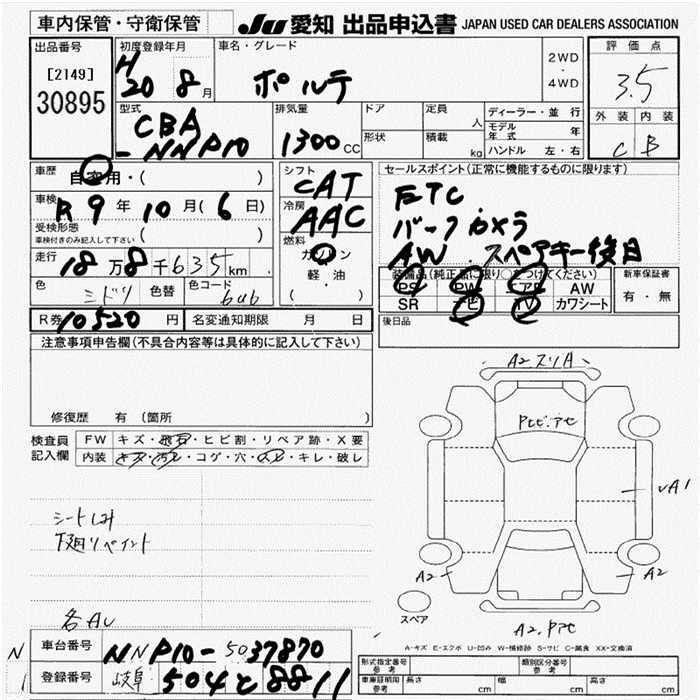 車内保管・守衛保管 JU 愛知 出品申込書 JAPAN USED CAR DEALERS ASSOCIATION
出品番号 [2149] 30895
初度登録年月 H 20 8月
車名・グレード ポルテ
2WD・4WD
評価点 3.5
外装 C 内装 B
型式 CBA-NNP10
排気量 1300CC
ドア 形状
定員 人
積載 kg
ディーラー・並行
モデル年式 年
ハンドル 左・右
車歴 自家用・( )
車検 R 9年 10月(6日)
受検形態 車検付きのみ記入して下さい ( )
走行 18万8千635km
色 ミドリ 色替 色コード 6ub
R券 10520円 名変通知期限 月 日
シフト CAT
冷房 AAC
燃料 ガソリン 軽・油 ( )
セールスポイント(正常に機能するものに限ります)
ETC
バックカメラ
AW スペアキー後日
装備品(純正品に限り○をつけてください)
PS PW アR AW
SR ナビ TV カワシート
新車保証書 有・無
後日品
注意事項申告欄(不具合内容等は具体的に記入して下さい)
修復歴 有 (箇所
検査員記入欄
FW キズ・飛石・ヒビ割・リペア跡・X要
内装 キズ・汚レ・コゲ・穴・スレ・キレ・破レ
シートしみ
下廻リペイント
各AU
A2スリA
Pヒビ.アセ
A1
A2
A2
A2.Pアセ
スペア
A-キズ E-エクボ U-凹み W-補修跡 S-サビ C-腐食 XX-交換済
車台番号 NNP10-5037870
登録番号 岐阜 504 と 8811
型式指定番号 参考
類別区分番号 参考
車庫証明用 参考 長さ cm 幅 cm 高さ cm